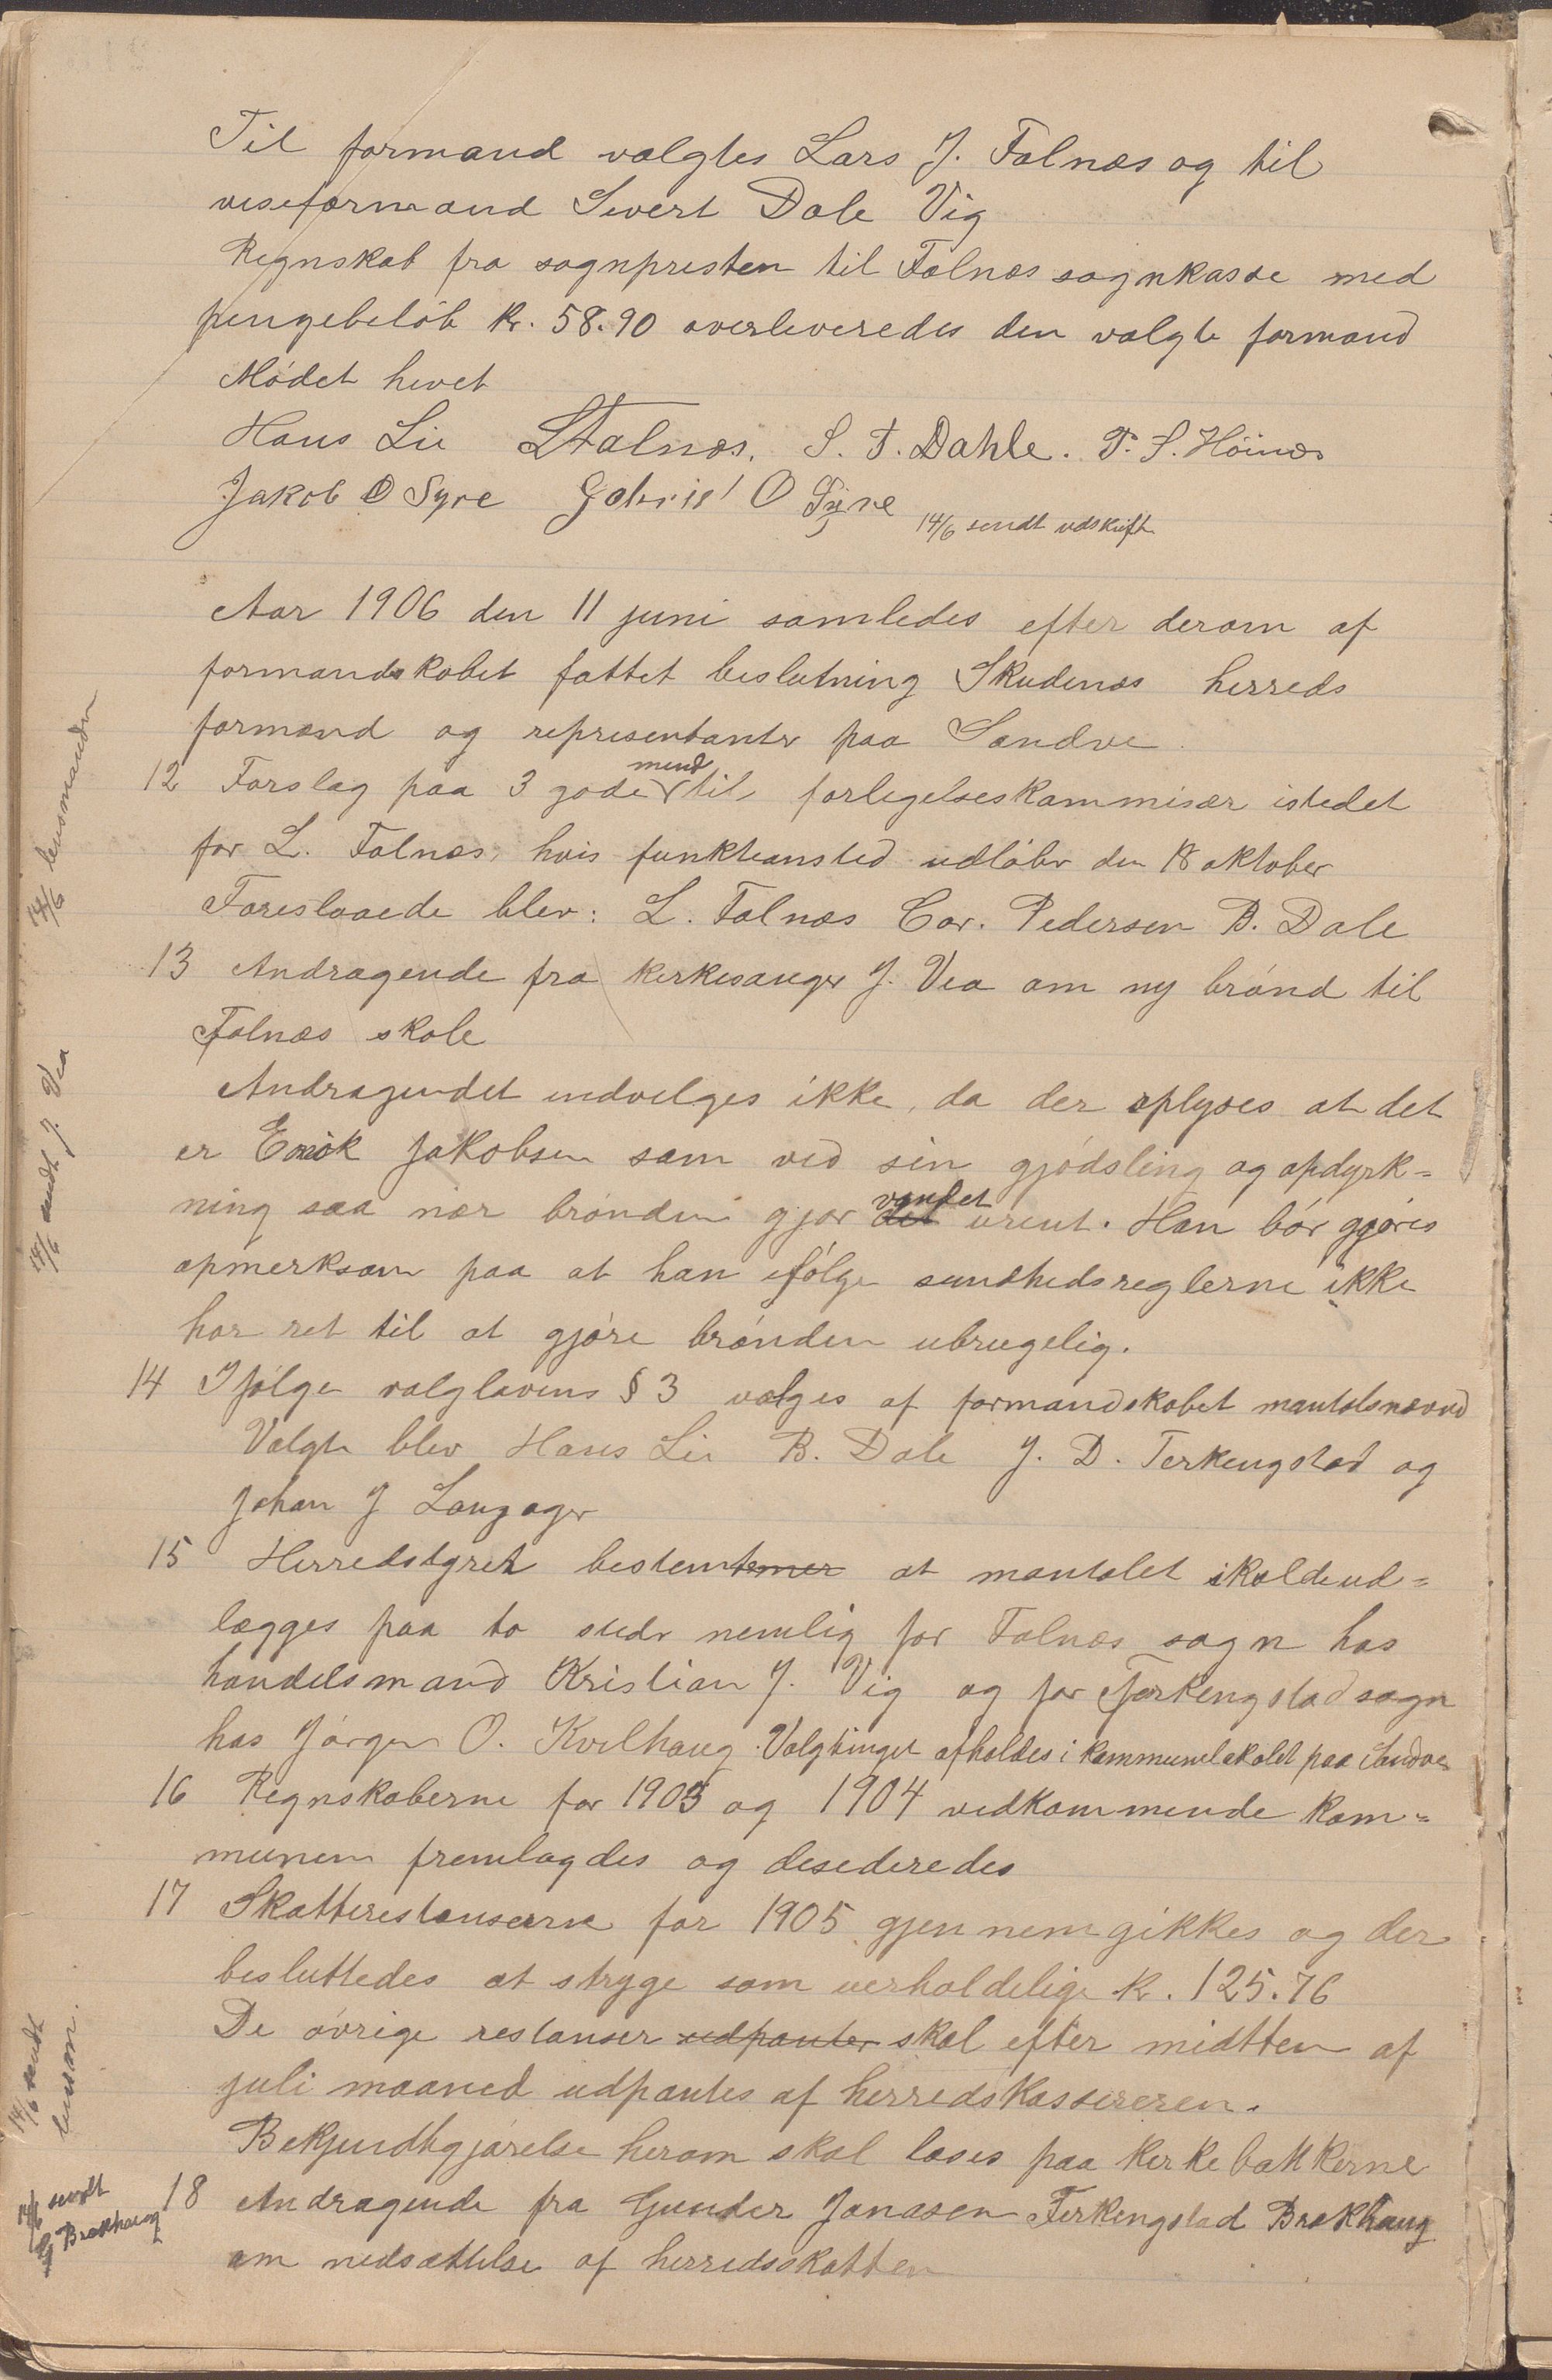 Til formand valgtes Lars J. Falnæs og til
viseformand Sivert Dale Vig
Regnskab fra sognpresten til Falnæs sognkasse med
pengebeløb Kr. 58.90 overleveredes den valgte formand
Mødet hevet
Hans Lie LFalnæs. S. T. Dahle. T. S. Høinæs
Jakob O Syre Gabriel O Syre 14/6 sendt udskrift
Aar 1906 den 11 juni samledes efter derom af
formandskabet fattet beslutning Skudenæs herreds
formænd og representanter paa Sandve
12 Forslag paa 3 gode mend til forligelseskommisær istedet
for L. Falnæs, hvis funktionstid udløber den 18 oktober
Foreslaaede blev: L. Falnæs Cor. Pedersen B. Dale
13 Andragende fra kirkesanger J. Vea om ny brønd til
Falnæs skole
Andragendet indvilges ikke, da der oplyses at det
er Enok Jakobsen som ved sin gjødsling og opdyrk=
ning saa nær brønden gjør det vandet urent. Han bør gjøres
opmerksom paa at han ifølge sundhedsreglerne ikke
har ret til at gjøre brønden ubrugelig.
14 Ifølge valglovens § 3 vælges af formandskabet mantalsnævnd
Valgte blev Hans Lie B. Dale J. D. Ferkengstad og
Johan J Langager
15 Herredstyret bestemtemer at mantalet skal de ud=
lægges paa to steder nemlig for Falnæs sogn hos
handelsmand Kristian J. Vig og for Ferkengstad sogn
hos Jørgen O. Kvilhaug. Valgtinget afholdes i kommunelokalet paa Sandve
16 Regnskaberne for 1903 og 1904 vedkommende kom=
munen fremlagdes og desideredes
17 Skatterestanserne for 1905 gjennemgikkes og der
besluttedes at stryge som uerholdelige Kr. 125.76
De øvrige restanser udpanter skal efter midtten af
juli maaned udpantes af herredskassereren.
Bekjendtgjørelse herom skal læses paa kirkebakkerne
18 Andragende fra Gunder Jonasen Ferkengstad Brekhaug
om nedsættelse af herredsskatten
14/6 lensmanden
14/6 sendt J. Vea
14/6 sendt
lensm.
14/6 sendt
G Brekhaug